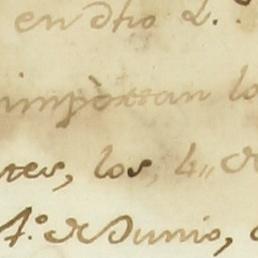 en dho L.º
importan lo
tes, los, 4,, de
7.º de Junio,